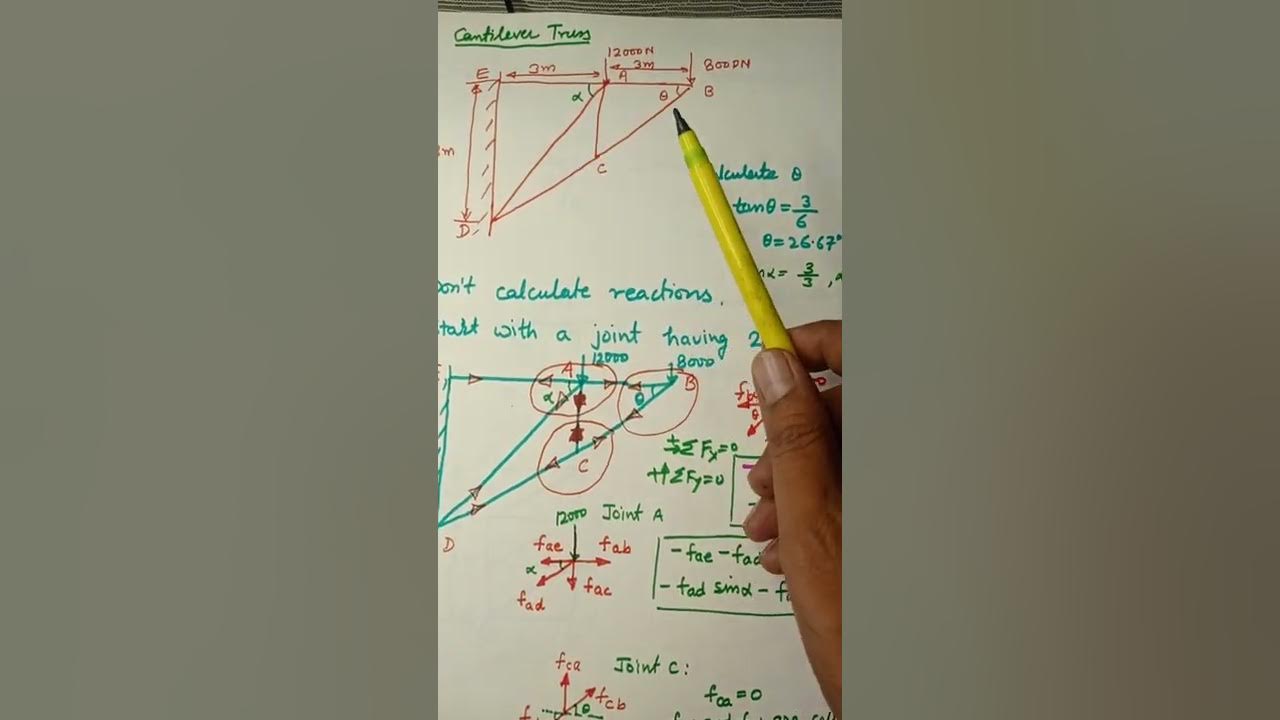 Cantilever Truss
12000N
3m
3m
8000N
E
A
α
θ
B
m
C
D
lculate θ
tanθ = 3/6
θ = 26.67°
α = 3/3 ,
on't calculate reactions.
tart with a joint having 2
12000
8000
A
B
α
θ
C
D
ΣFx=0
ΣFy=0
12000 Joint A
fae
fab
α
fac
fad
-fae -fad
- fad sinα -
fca
Joint C:
fcb
θ
fca = 0